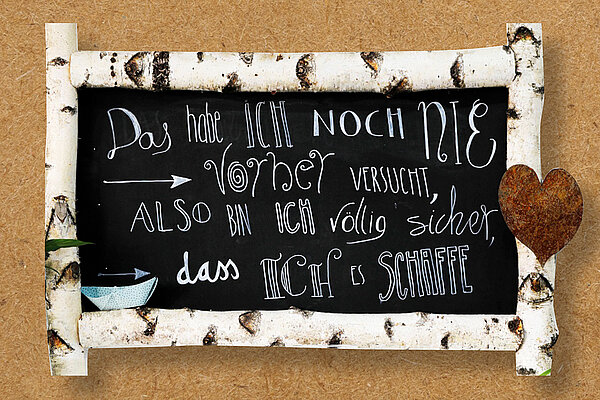 Das habe ICH NOCH NIE
Vorher VERSUCHT,
ALSO BIN ICH völlig sicher,
dass ICH ES SCHAFFE